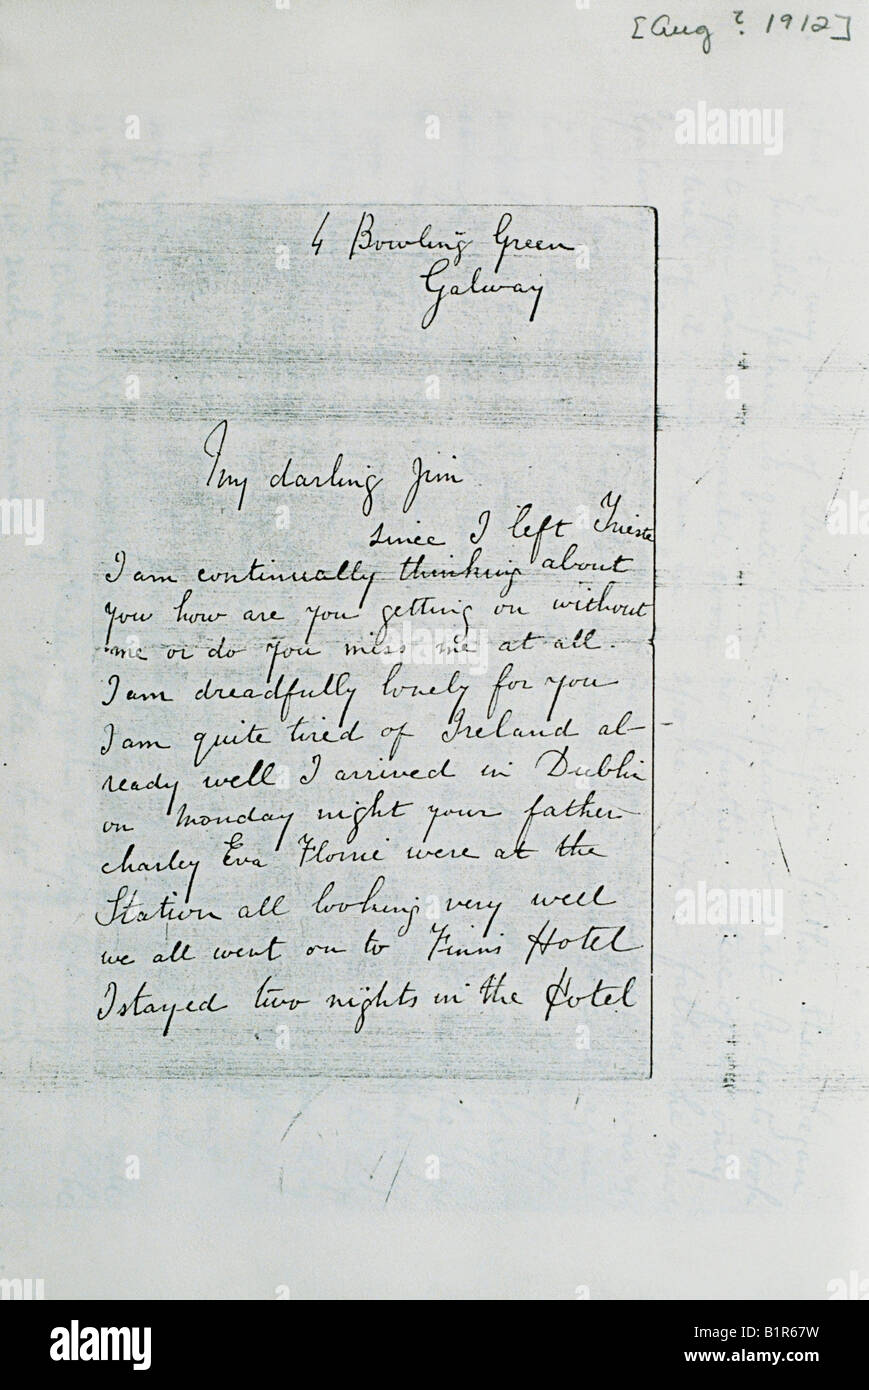 [Aug ? 1912]
4 Bowling Green
Galway
My darling Jim
since I left Trieste
I am continually thinking about
you how are you getting on without
me or do you miss me at all.
I am dreadfully lonely for you
I am quite tired of Ireland al-
ready well I arrived in Dublin
on Monday night your father
charley Eva Florrie were at the
Station all looking very well
we all went on to Finns Hotel
I stayed two nights in the Hotel
alamy
Image ID: B1R67W
www.alamy.com